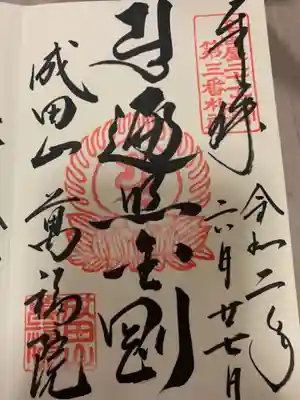 奉拝
第三番札所
令和二年
六月廿七日
遍照金剛
成田山 萬福院